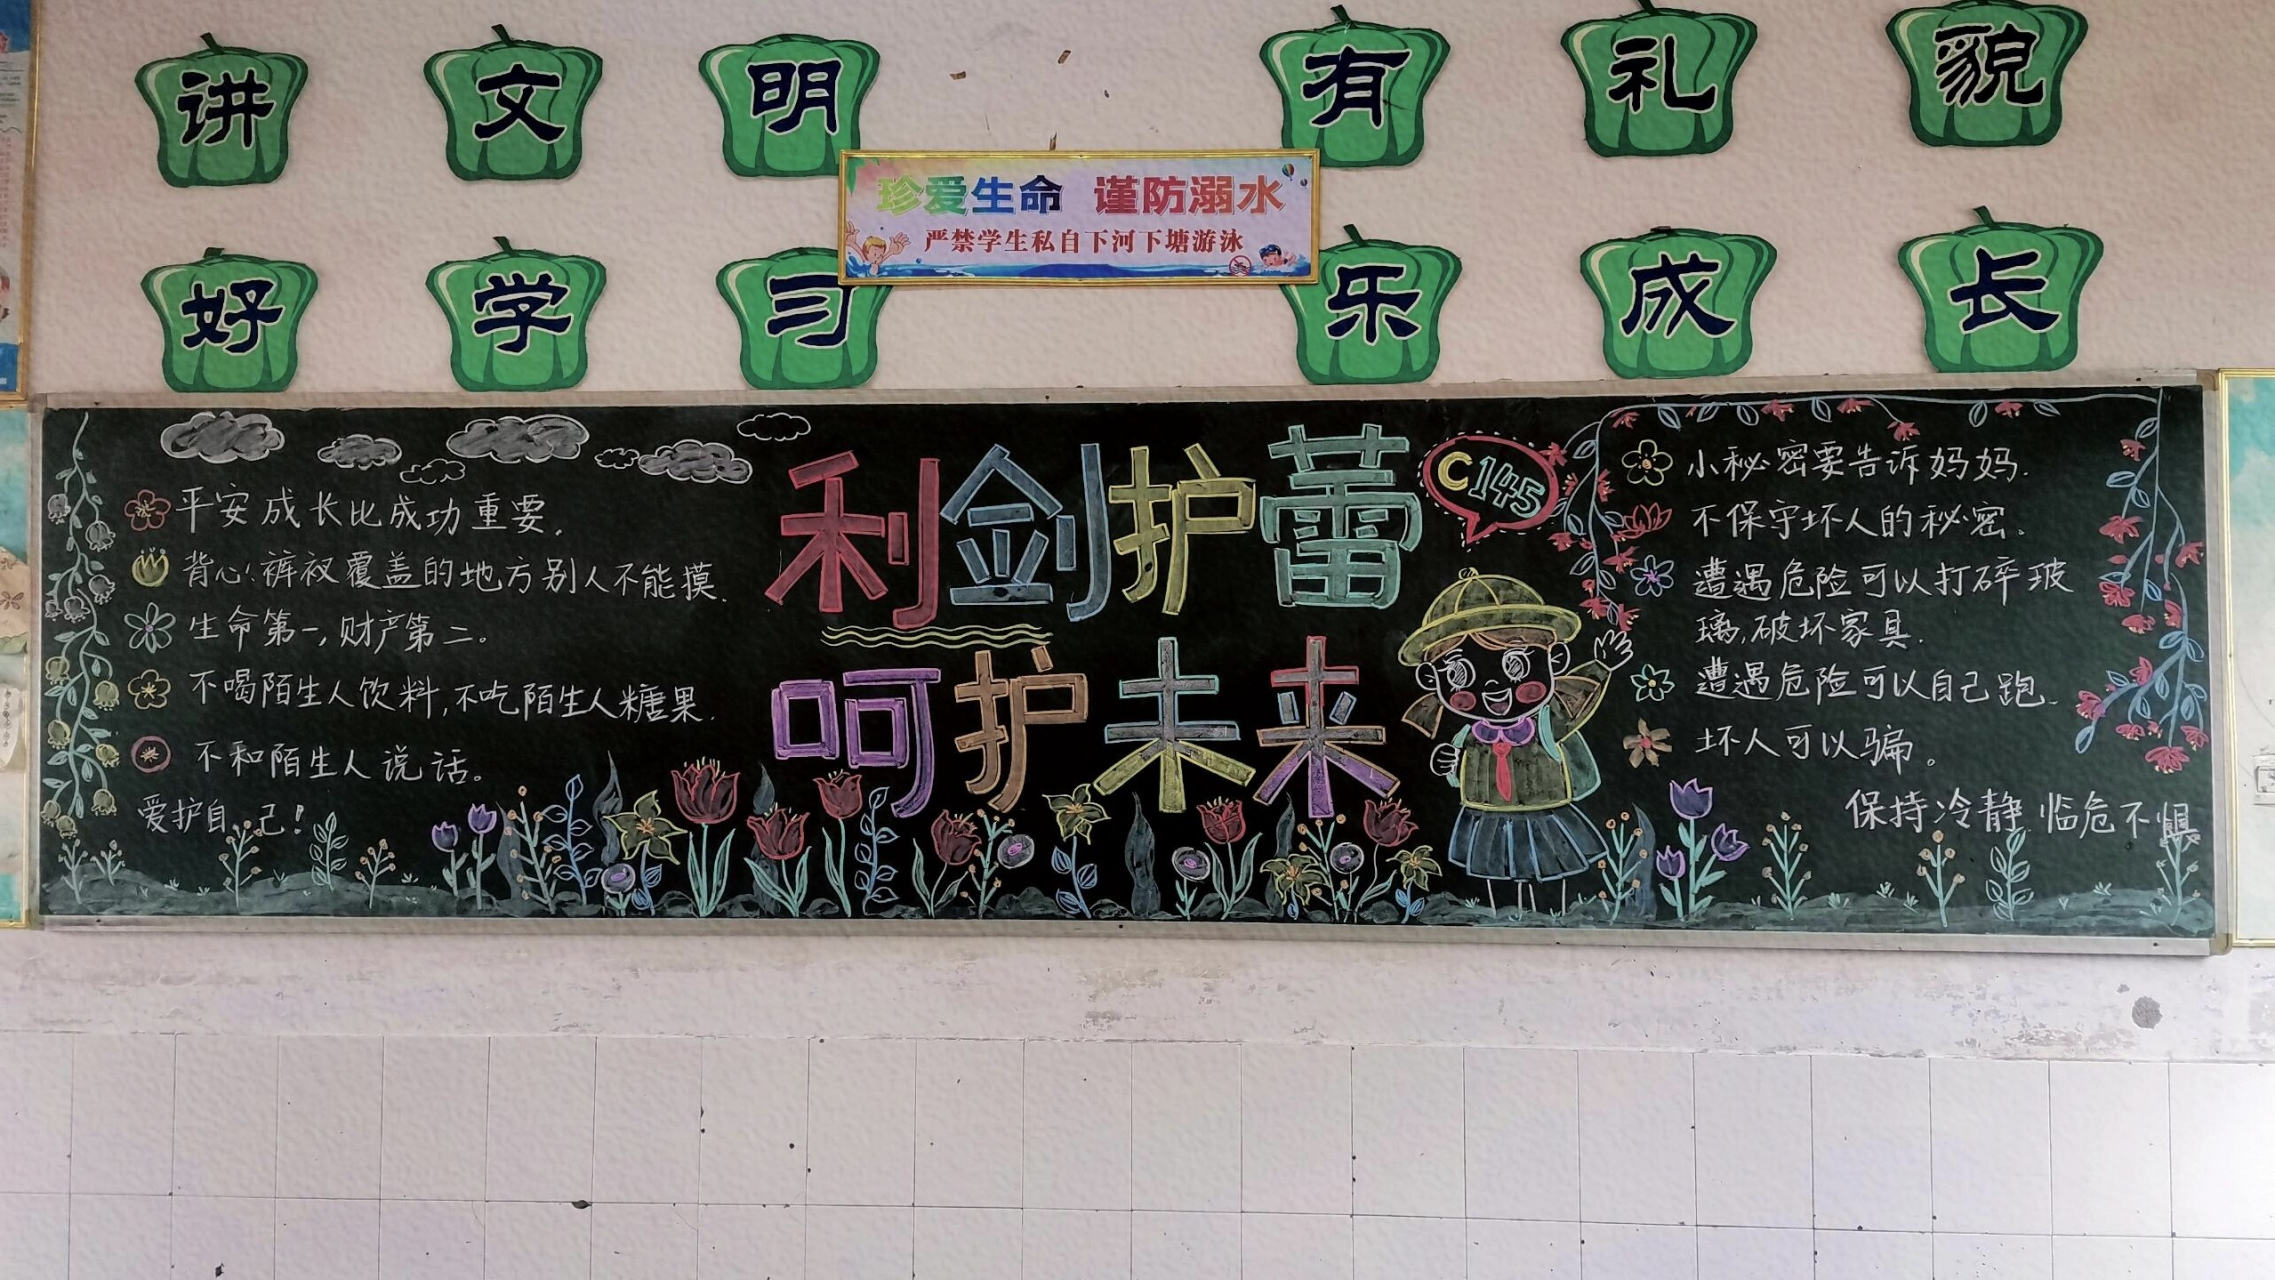 讲文明 有礼貌
珍爱生命 谨防溺水
严禁学生私自下河下塘游泳
好学习 乐成长
利剑护蕾
呵护未来
C145
平安成长比成功重要.
背心、裤衩覆盖的地方别人不能摸.
生命第一,财产第二。
不喝陌生人饮料,不吃陌生人糖果.
不和陌生人说话。
爱护自己!
小秘密要告诉妈妈.
不保守坏人的秘密。
遭遇危险可以打碎玻
璃,破坏家具.
遭遇危险可以自己跑.
坏人可以骗。
保持冷静 临危不惧